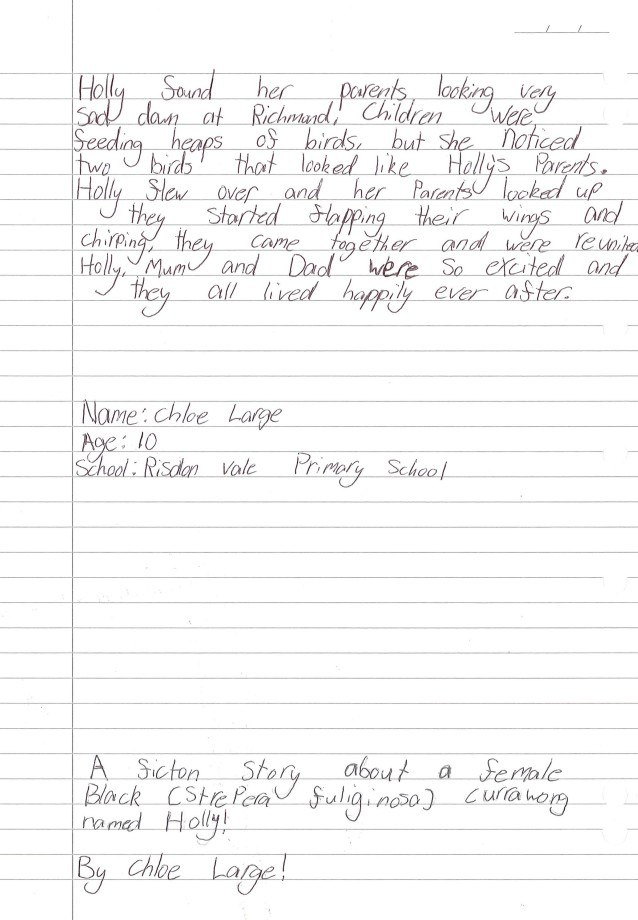 Holly found her parents looking very
sad down at Richmond, Children were
feeding heaps of birds, but she noticed
two birds that looked like Holly's Parents.
Holly flew over and her Parents looked up
they started flapping their wings and
chirping, they came together and were reunited
Holly, Mum and Dad were so excited and
they all lived happily ever after.
Name: Chloe Large
Age: 10
School: Risdon vale Primary School
A ficton Story about a female
Black (Strepera fuliginosa) currawong
named Holly!
By Chloe Large!